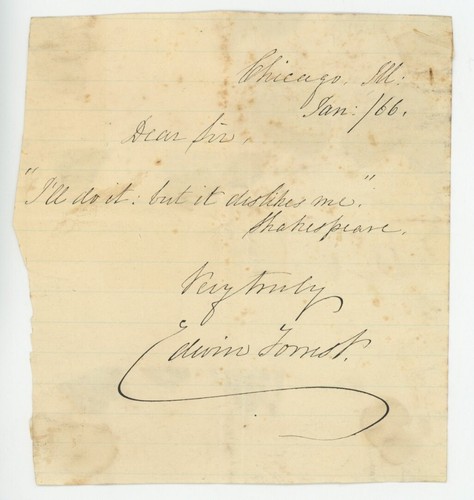 Chicago. Ill:
Jan: /66.
Dear Sir,
"I'll do it: but it dislikes me."
Shakespeare.
Very truly
Edwin Forrest.